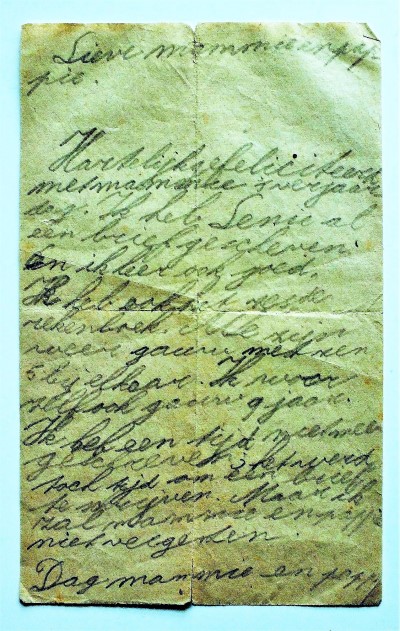 Lieve mammie en pap
pie.
Hartelijk gefeliciteerd
met mammie's verjaar
dag. Ik heb Lenie al
een brief geschreven
en ik leer ook goed.
Ik heb ook het zesde
rekenboek. We zijn
gauw met zen
5 bij elkaar. Ik word
zelf ook gauw 9 jaar.
Ik heb een tijd niet meer
geschreven, het werd
toch tijd om een brief
te schrijven. Maar ik
zal mammie en pappie
niet vergeten.
Dag mammie en pappi